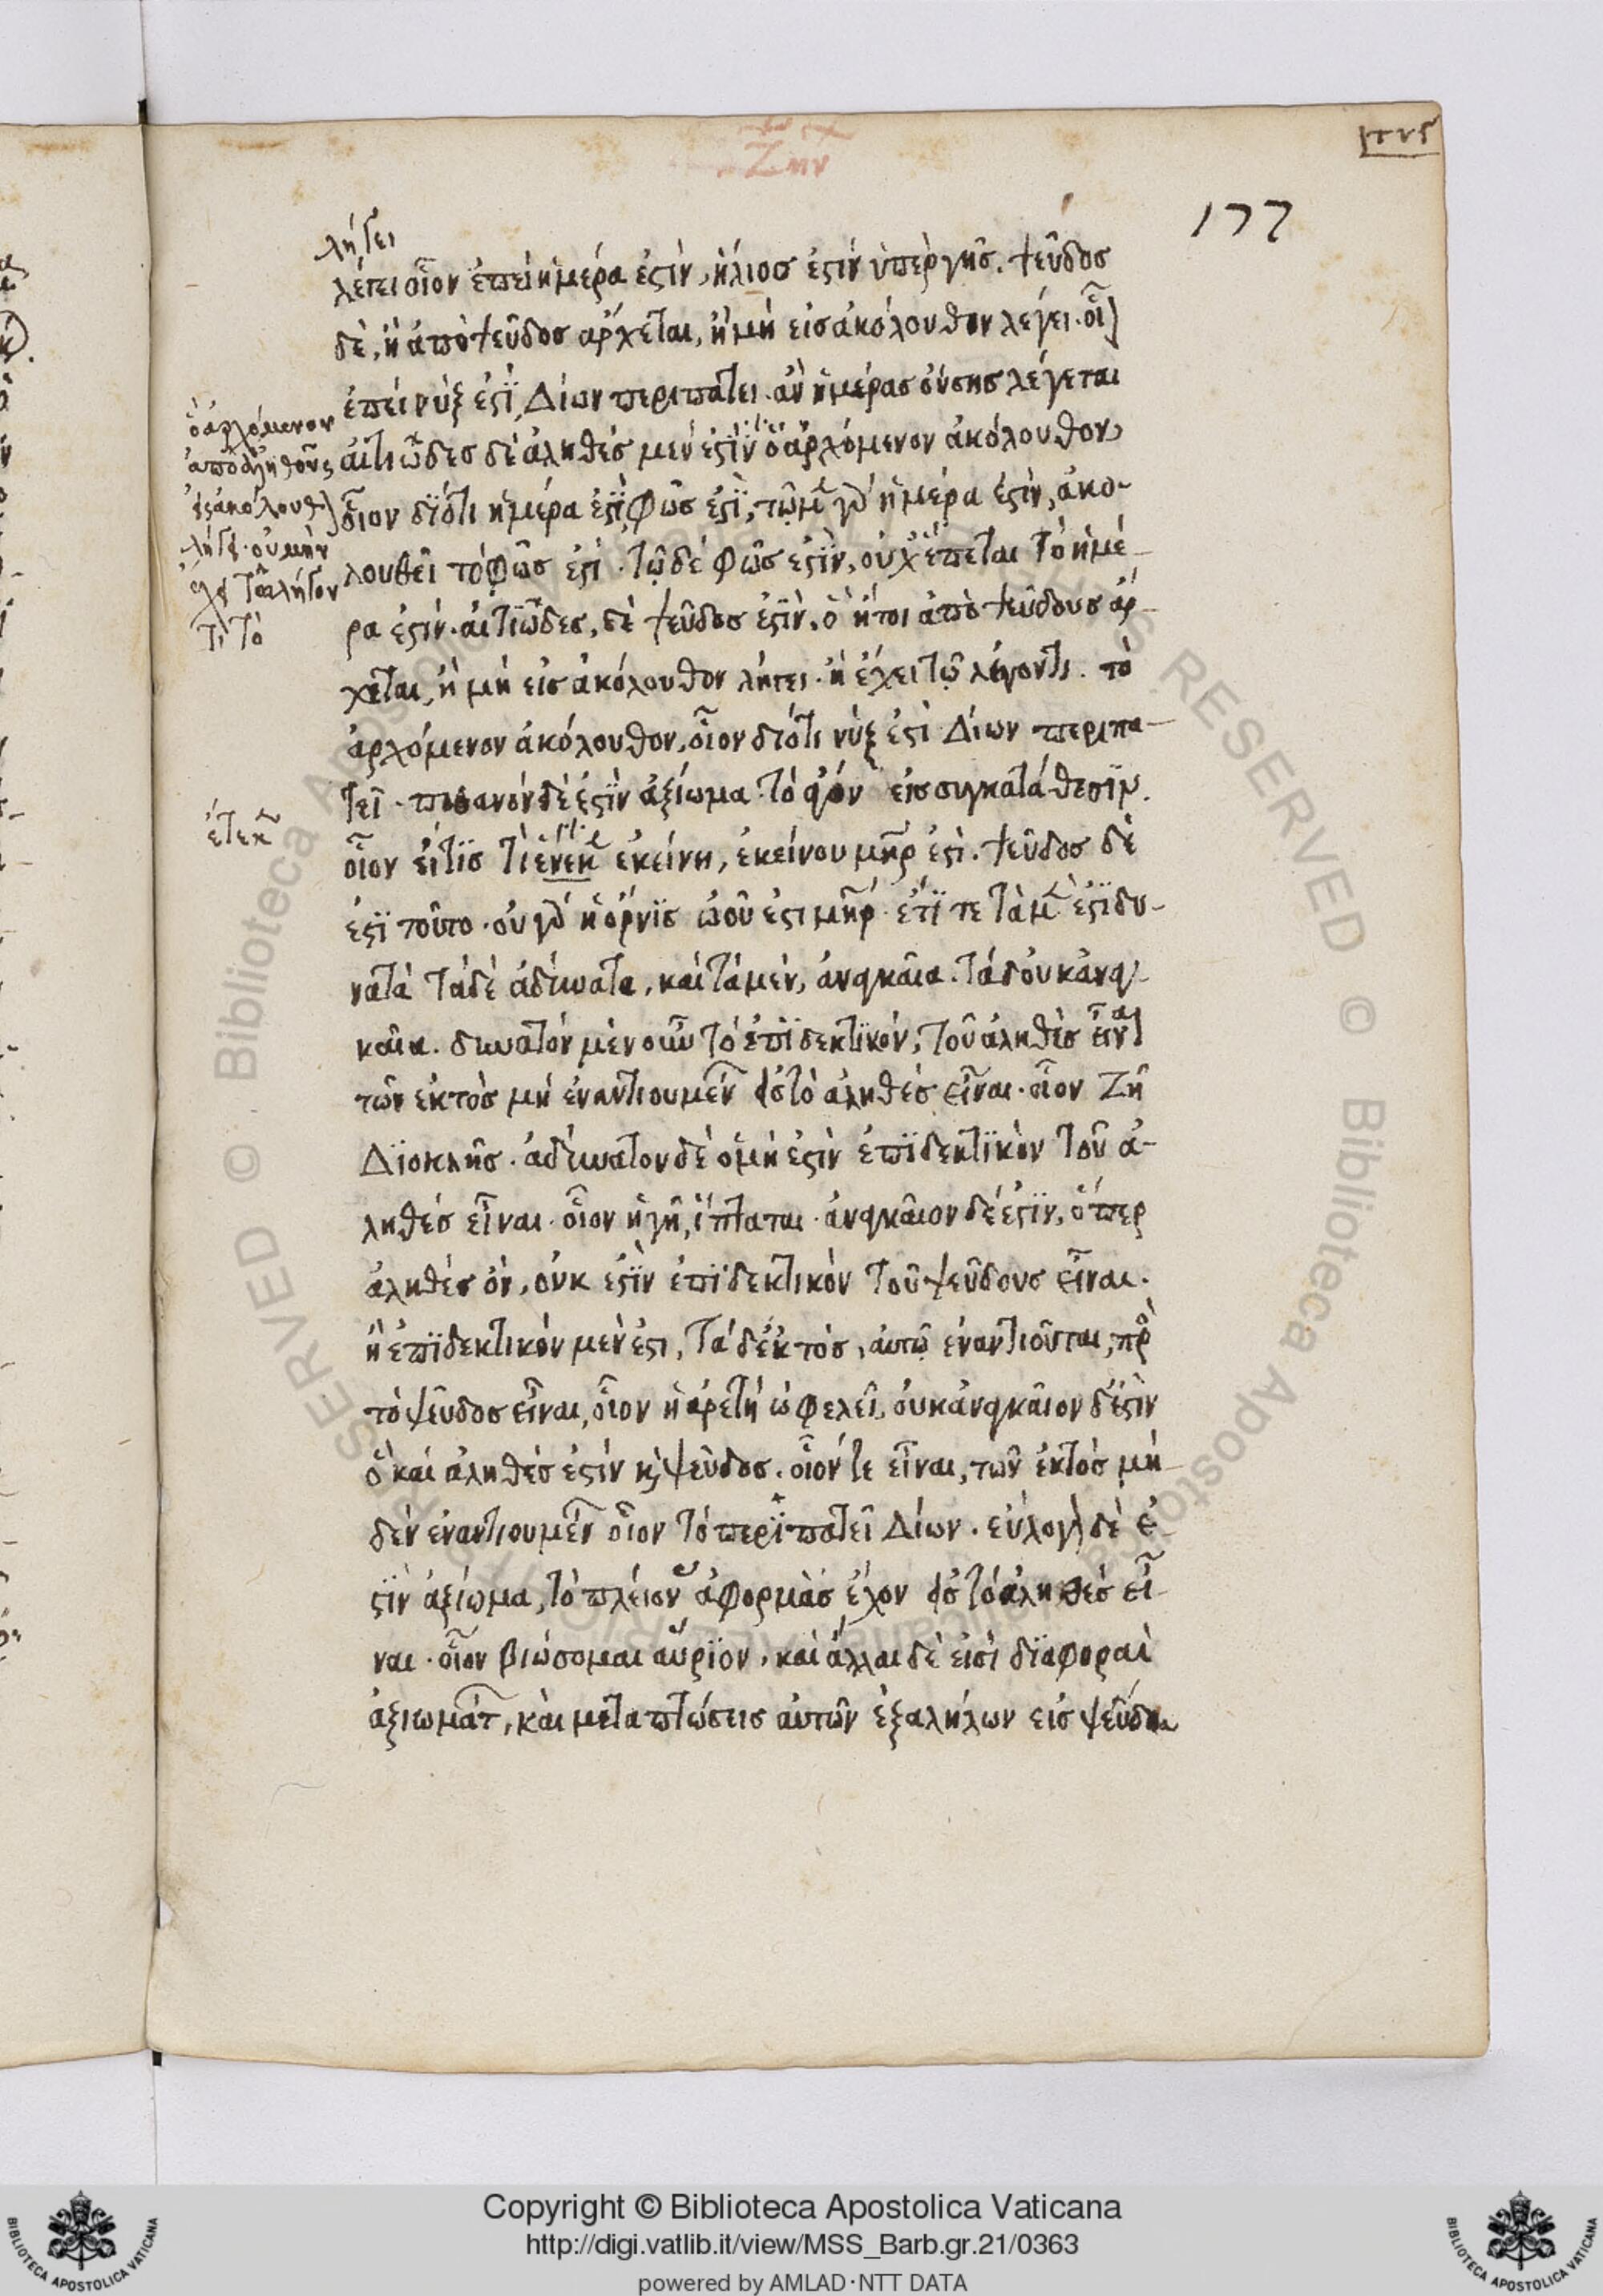 Ζην
177
λήγει
λέγει οἷον ἐπεὶ ἡμέρα ἐστὶν, ἥλιος ἐστὶν ὑπὲρ γῆς. ψεῦδος
δὲ, ἢ ἀπὸ ψεῦδος αρχεται, ἢ μὴ εἰς ἀκόλουθον λέγει. οἷ
ἐπεὶ νὺξ ἐστὶ, Δίων περιπατει. ἂν ἡμέρας οὔσης λέγεται
αἰτιῶδες δὲ ἀληθές μεν ἐστὶν ὃ ἀρχόμενον ἀκόλουθον
οἷον διότι ἡμέρα ἐστὶ, φῶς ἐστὶ, τῷ μ γὰρ ἡμέρα ἐστὶν, ἀκο-
λουθεῖ τὸ φῶς ἐστί. τῷ δὲ φῶς ἐστὶν, οὐχ ἕπεται τὸ ἡμέ-
ρα ἐστίν. αἰτιῶδες, δὲ ψεῦδος ἐστὶν, ὃ ἤτοι ἀπὸ ψεύδους ἄρ-
χεται, ἢ μὴ εἰς ἀκόλουθον λήγει. ἢ ἔχει τῷ λέγοντι. τὸ
ἀρχόμενον ἀκόλουθον, οἷον διότι νὺξ ἐστὶ Δίων περιπα-
τεῖ. πιθανὸν δὲ ἐστὶν ἀξίωμα τὸ ἀγον εἰς συγκατάθεσιν.
οἷον εἴ τις τὶ ἐνεκ ἐκείνη, ἐκείνου μηρ ἐστὶ. ψεῦδος δὲ
ἐστὶ τοῦτο. οὐ γὰρ ἡ ὄρνις ὠοῦ ἐστι μηρ. ἔτι τε τὰ μ ἐστὶ δυ-
νατὰ τὰ δὲ ἀδύνατα, καὶ τὰ μὲν, ἀναγκαῖα. τὰ δ οὐκ ἀναγ-
καῖα. δυνατὸν μὲν οὖν τὸ ἐπιδεκτικόν, τοῦ ἀληθὲς εἶν
τῶν ἐκτὸς μὴ ἐναντιουμέν εἰς τὸ ἀληθὲς εἶναι. οἷον ζῆ
Διοκλῆς. ἀδύνατον δὲ ὃ μή ἐστὶν ἐπιδεκτικὸν τοῦ ἀ-
ληθές εἶναι. οἷον ἡ γῆ, ἵπταται. ἀναγκαῖον δέ ἐστὶν, ὅπερ
ἀληθὲς ὂν, οὐκ ἐστὶν ἐπιδεκτικὸν τοῦ ψεῦδους εἶναι.
ἢ ἐπιδεκτικὸν μὲν ἐστι, τὰ δ ἐκτὸς, αὐτῷ ἐναντιοῦται, πρ
τὸ ψεῦδος εἶναι, οἷον ἡ ἀρετὴ ὠφελεῖ, οὐκ ἀναγκαῖον δ ἐστὶν
ὃ καὶ ἀληθές ἐστὶν κ ψεῦδος. οἷόν τε εἶναι, τῶν ἐκτὸς μη
δὲν ἐναντιουμέν οἷον τὸ περιπατεῖ Δίων. εὔλογ δὲ ἐ-
στὶν ἀξίωμα, τὸ πλείον ἀφορμὰς ἔχον εἰς τὸ ἀληθὲς εἶ-
ναι. οἷον βιώσομαι αὔριον. καὶ ἄλλαι δὲ εἰσὶ διαφοραὶ
ἀξιωμάτ, καὶ μεταπτώσεις αὐτῶν ἐξ αλήλων εἰς ψεῦδη
ὃ ἀρχόμενον
ἀπὸ ἀληθοῦς
εἰς ἀκόλουθ
λήγ. οὐ μὴν
τὸ λῆγον
τι τὸ
ἔτεκ
Copyright © Biblioteca Apostolica Vaticana
http://digi.vatlib.it/view/MSS_Barb.gr.21/0363
powered by AMLAD·NTT DATA
BIBLIOTECA APOSTOLICA VATICANA
BIBLIOTECA APOSTOLICA VATICANA